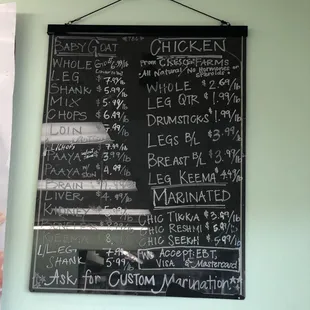 BABY GOAT
WHOLE 6.99/lb
LEG $7.99/lb
SHANK $5.99/lb
MIX $5.99/lb
CHOPS 6.49/lb
LOIN
PAAYA 3.99/lb
PAAYA $4.99
BRAIN
LIVER 4.99/lb
KIDNEY
LEG 7.99/lb
SHANK 5.99/lb
CHICKEN
FARMS
All Natural No Hormones or
WHOLE $2.69/lb
LEG QTR $1.99/lb
DRUMSTICKS $1.99/lb
LEGS B/L $3.99/lb
BREAST B/L $3.99/lb
LEG KEEMA $4.99/lb
MARINATED
CHIC TIKKA $3.99/lb
CHIC RESHMI $5.99/lb
CHIC SEEKH $5.99/lb
ACCEPT EBT,
VISA & Mastercard
*ASK FOR CUSTOM MARINATION*